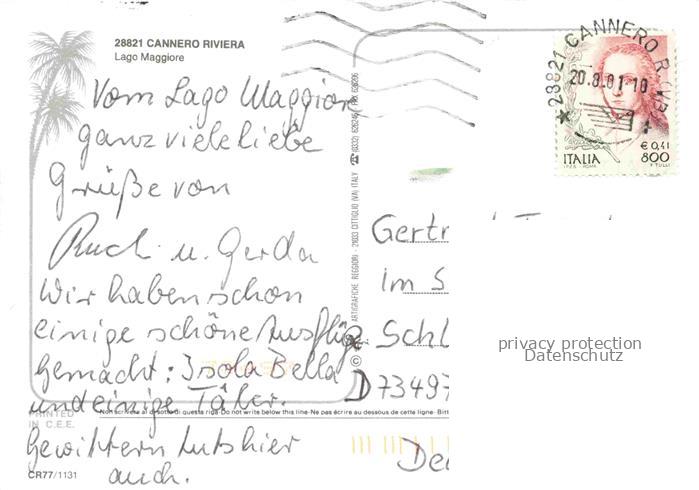 28821 CANNERO RIVIERA
Lago Maggiore
Vom Lago Maggiore
ganz viele liebe
Grüße von
u. Gerda
Wir haben schon
einige schöne Ausflüge
gemacht: Isola Bella
und einige Täler.
Gewittern tuts hier
auch.
PRINTED
IN C.E.E.
CR77/1131
Non scrivere al disotto di questa riga-Do not write below this line-Ne pas écrire au dessous de cette ligne-Bitt
© ARTIGRAFICHE REGGIORI - 21033 CITTIGLIO (VA) ITALY
28821 CANNERO R.
20.8.01-10
ITALIA
€ 0,41
800
Gertr
im S
Schl
D 73497
De
privacy protection
Datenschutz